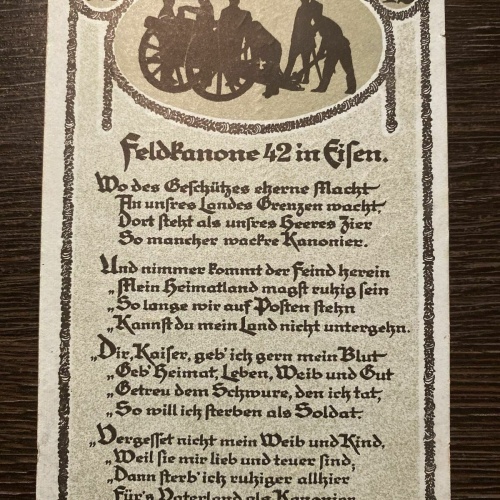 Feldkanone 42 in Eisen.
Wo des Geschützes eherne Macht
An unsres Landes Grenzen wacht,
Dort steht als unsres Heeres Zier
So mancher wackre Kanonier.
Und nimmer kommt der Feind herein
„Mein Heimatland magst ruhig sein
„So lange wir auf Posten stehn
„Kannst du mein Land nicht untergehn.
„Dir, Kaiser, geb' ich gern mein Blut
„Geb' Heimat, Leben, Weib und Gut
„Getreu dem Schwure, den ich tat,
„So will ich sterben als Soldat.
„Vergesset nicht mein Weib und Kind,
„Weil sie mir lieb und teuer sind;
„Dann sterb' ich ruhiger allhier
Für's Vaterland als Kanonier